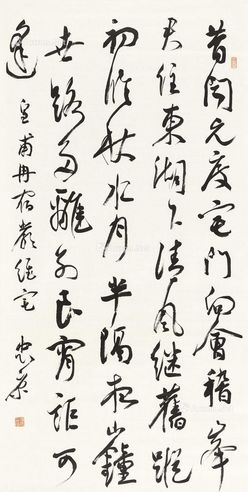 昔聞元度宅門向會稽峯
君住東湖下清風繼舊蹤
初臨秋水月半隔夜山鐘
世路多離別良宵詎可
逢 皇甫冉宿嚴維宅